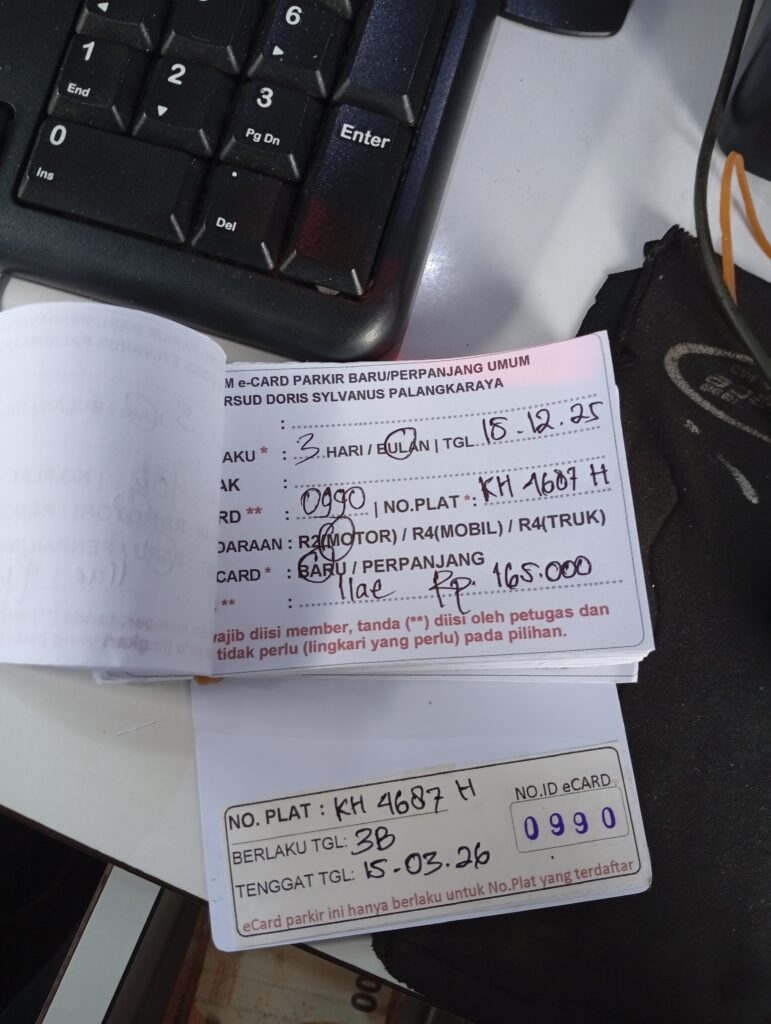 6
1
End
2
3
Pg Dn
Enter
0
Ins
.
Del
M e-CARD PARKIR BARU/PERPANJANG UMUM
RSUD DORIS SYLVANUS PALANGKARAYA
:
AKU * : 3 HARI / BULAN | TGL 15.12.25
AK :
RD ** : 0990 | NO.PLAT *: KH 4687 H
DARAAN : R2(MOTOR) / R4(MOBIL) / R4(TRUK)
CARD * : BARU / PERPANJANG
** : Ilae Rp. 165.000
wajib diisi member, tanda (**) diisi oleh petugas dan
tidak perlu (lingkari yang perlu) pada pilihan.
NO. PLAT : KH 4687 H
NO.ID eCARD
0990
BERLAKU TGL: 3B
TENGGAT TGL: 15-03.26
eCard parkir ini hanya berlaku untuk No.Plat yang terdaftar